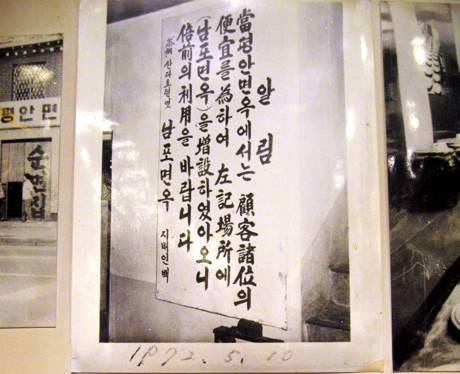 알림
當평안면옥에서는 顧客諸位의
便宜를 為하여 左記場所에
(남포면옥)을 增設하였아오니
倍前의 利用을 바랍니다
남포면옥 지배인백
평안면
순면집
1972.5.10